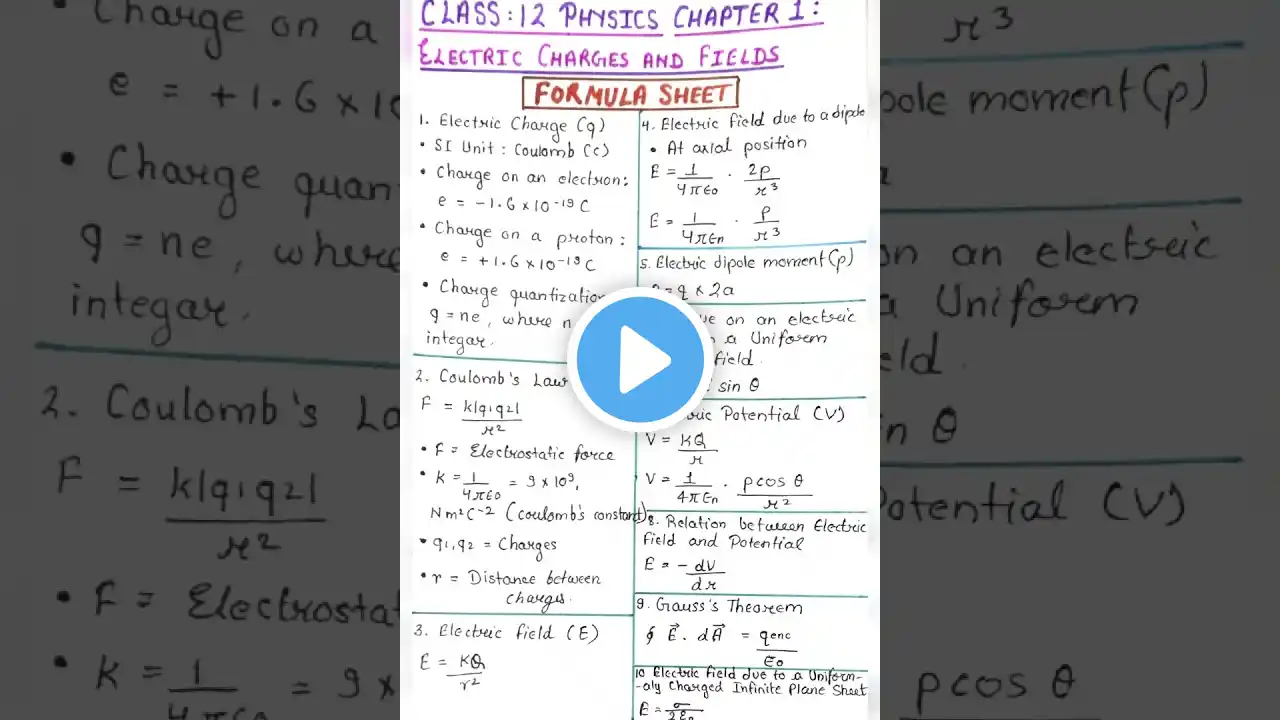 CLASS:12 PHYSICS CHAPTER 1:
ELECTRIC CHARGES AND FIELDS
FORMULA SHEET
1. Electric Charge (q)
• SI Unit : Coulomb (C)
• Charge on an electron:
e = -1.6 × 10⁻¹⁹ C
• Charge on a proton:
e = +1.6 × 10⁻¹⁹ C
• Charge quantization
q = ne, where n
integar.
2. Coulomb's Law
F = k|q1q2| / r²
• F = Electrostatic force
• k = 1/4πε0 = 9 × 10⁹,
Nm²C⁻² (coulomb's constant)
• q1, q2 = Charges
• r = Distance between
charges.
3. Electric field (E)
E = KQ / r²
4. Electric field due to a dipole
• At axial position
E = 1/4πε0 · 2p/r³
E = 1/4πε0 · p/r³
5. Electric dipole moment (p)
= q × 2a
on an electric
a Uniform
field.
sin θ
Potential (V)
V = kQ / r
V = 1/4πε0 · pcos θ / r²
8. Relation between Electric
field and Potential
E = -dV/dr
9. Gauss's Theorem
∮ E⃗ . dA⃗ = qenc / ε0
10 Electric field due to a Uniform-
-aly Charged Infinite Plane Sheet
E = σ/2ε0
Charge on a
e = +1.6 × 10
• Charge quan
q = ne, where
integar.
2. Coulomb's La
F = k|q1q2| / r²
• F = Electrostat
• k = 1 = 9 ×
r³
pole moment (p)
on an electric
a Uniform
eld.
in θ
Potential (V)
pcos θ